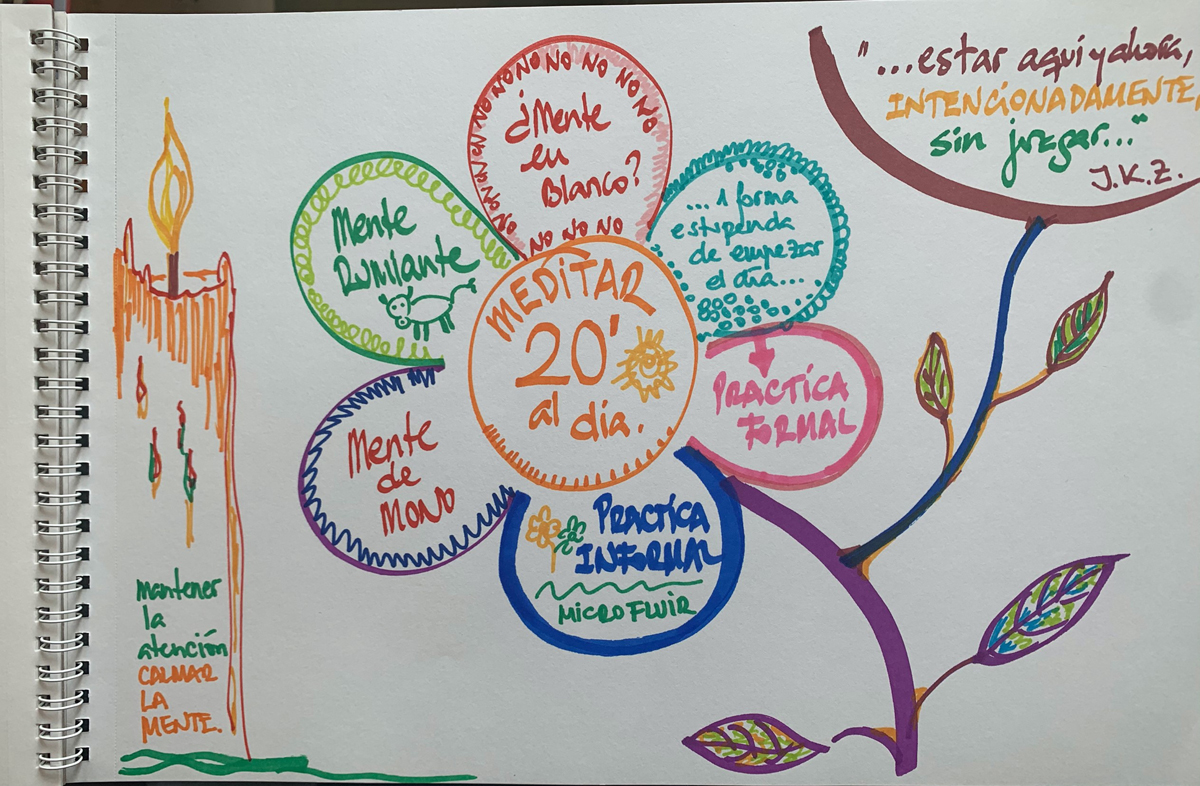 "...estar aquí y ahora,
INTENCIONADAMENTE,
sin juzgar..."
J.K.Z.
NO NO NO NO NO NO NO NO NO NO NO NO NO
¿Mente
en
Blanco?
NO NO NO NO
...1 forma
estupenda
de empezar
el día...
Mente
RUMIANTE
MEDITAR
20'
al día.
PRACTICA
FORMAL
Mente
de
MONO
PRACTICA
INFORMAL
MICRO FLUIR
mantener
la
atención
CALMAR
LA
MENTE.